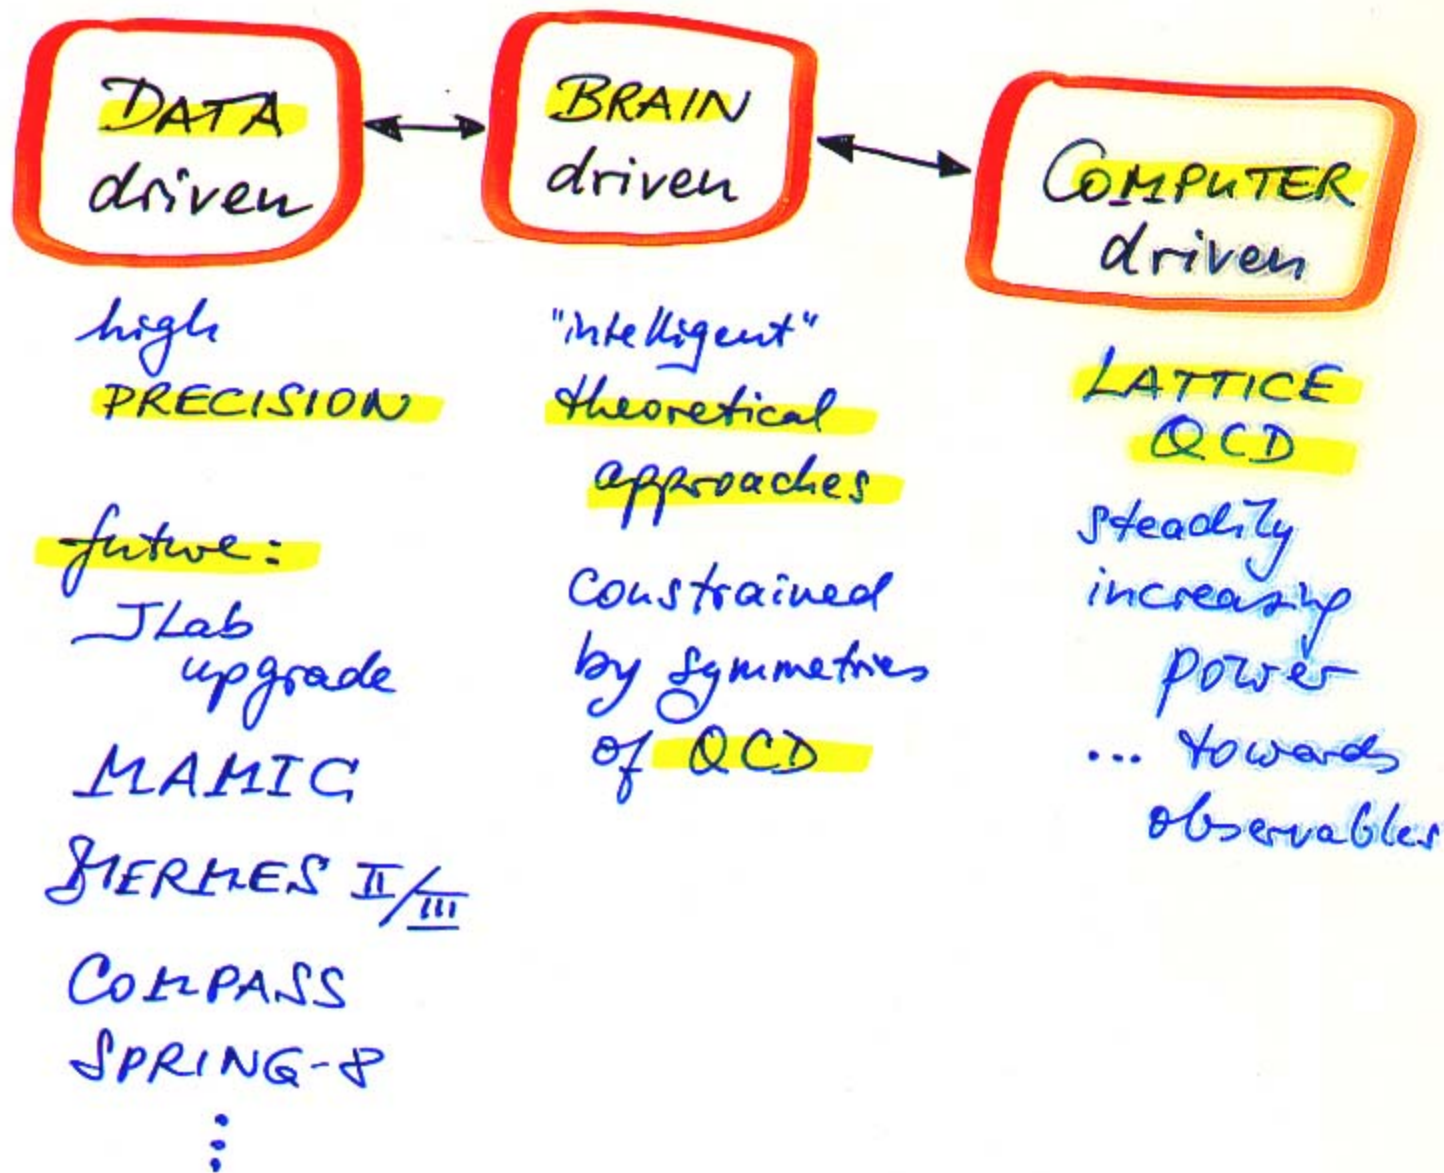 DATA
driven
high
PRECISION
future:
JLab
upgrade
MAMIC
HERMES II/III
COMPASS
SPRING-8
⋮
BRAIN
driven
"intelligent"
theoretical
approaches
constrained
by symmetries
of QCD
COMPUTER
driven
LATTICE
QCD
steadily
increasing
power
... towards
observables